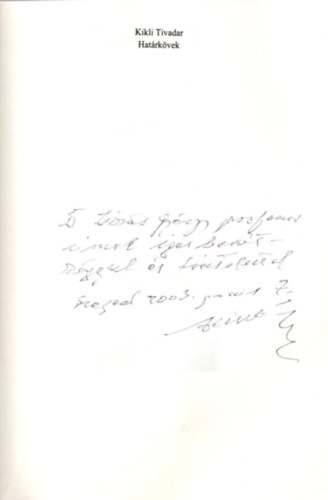 Kikli Tivadar
Határkövek
György professor
úrnak igaz barát-
sággal és tisztelettel
Szeged 2003. 7.